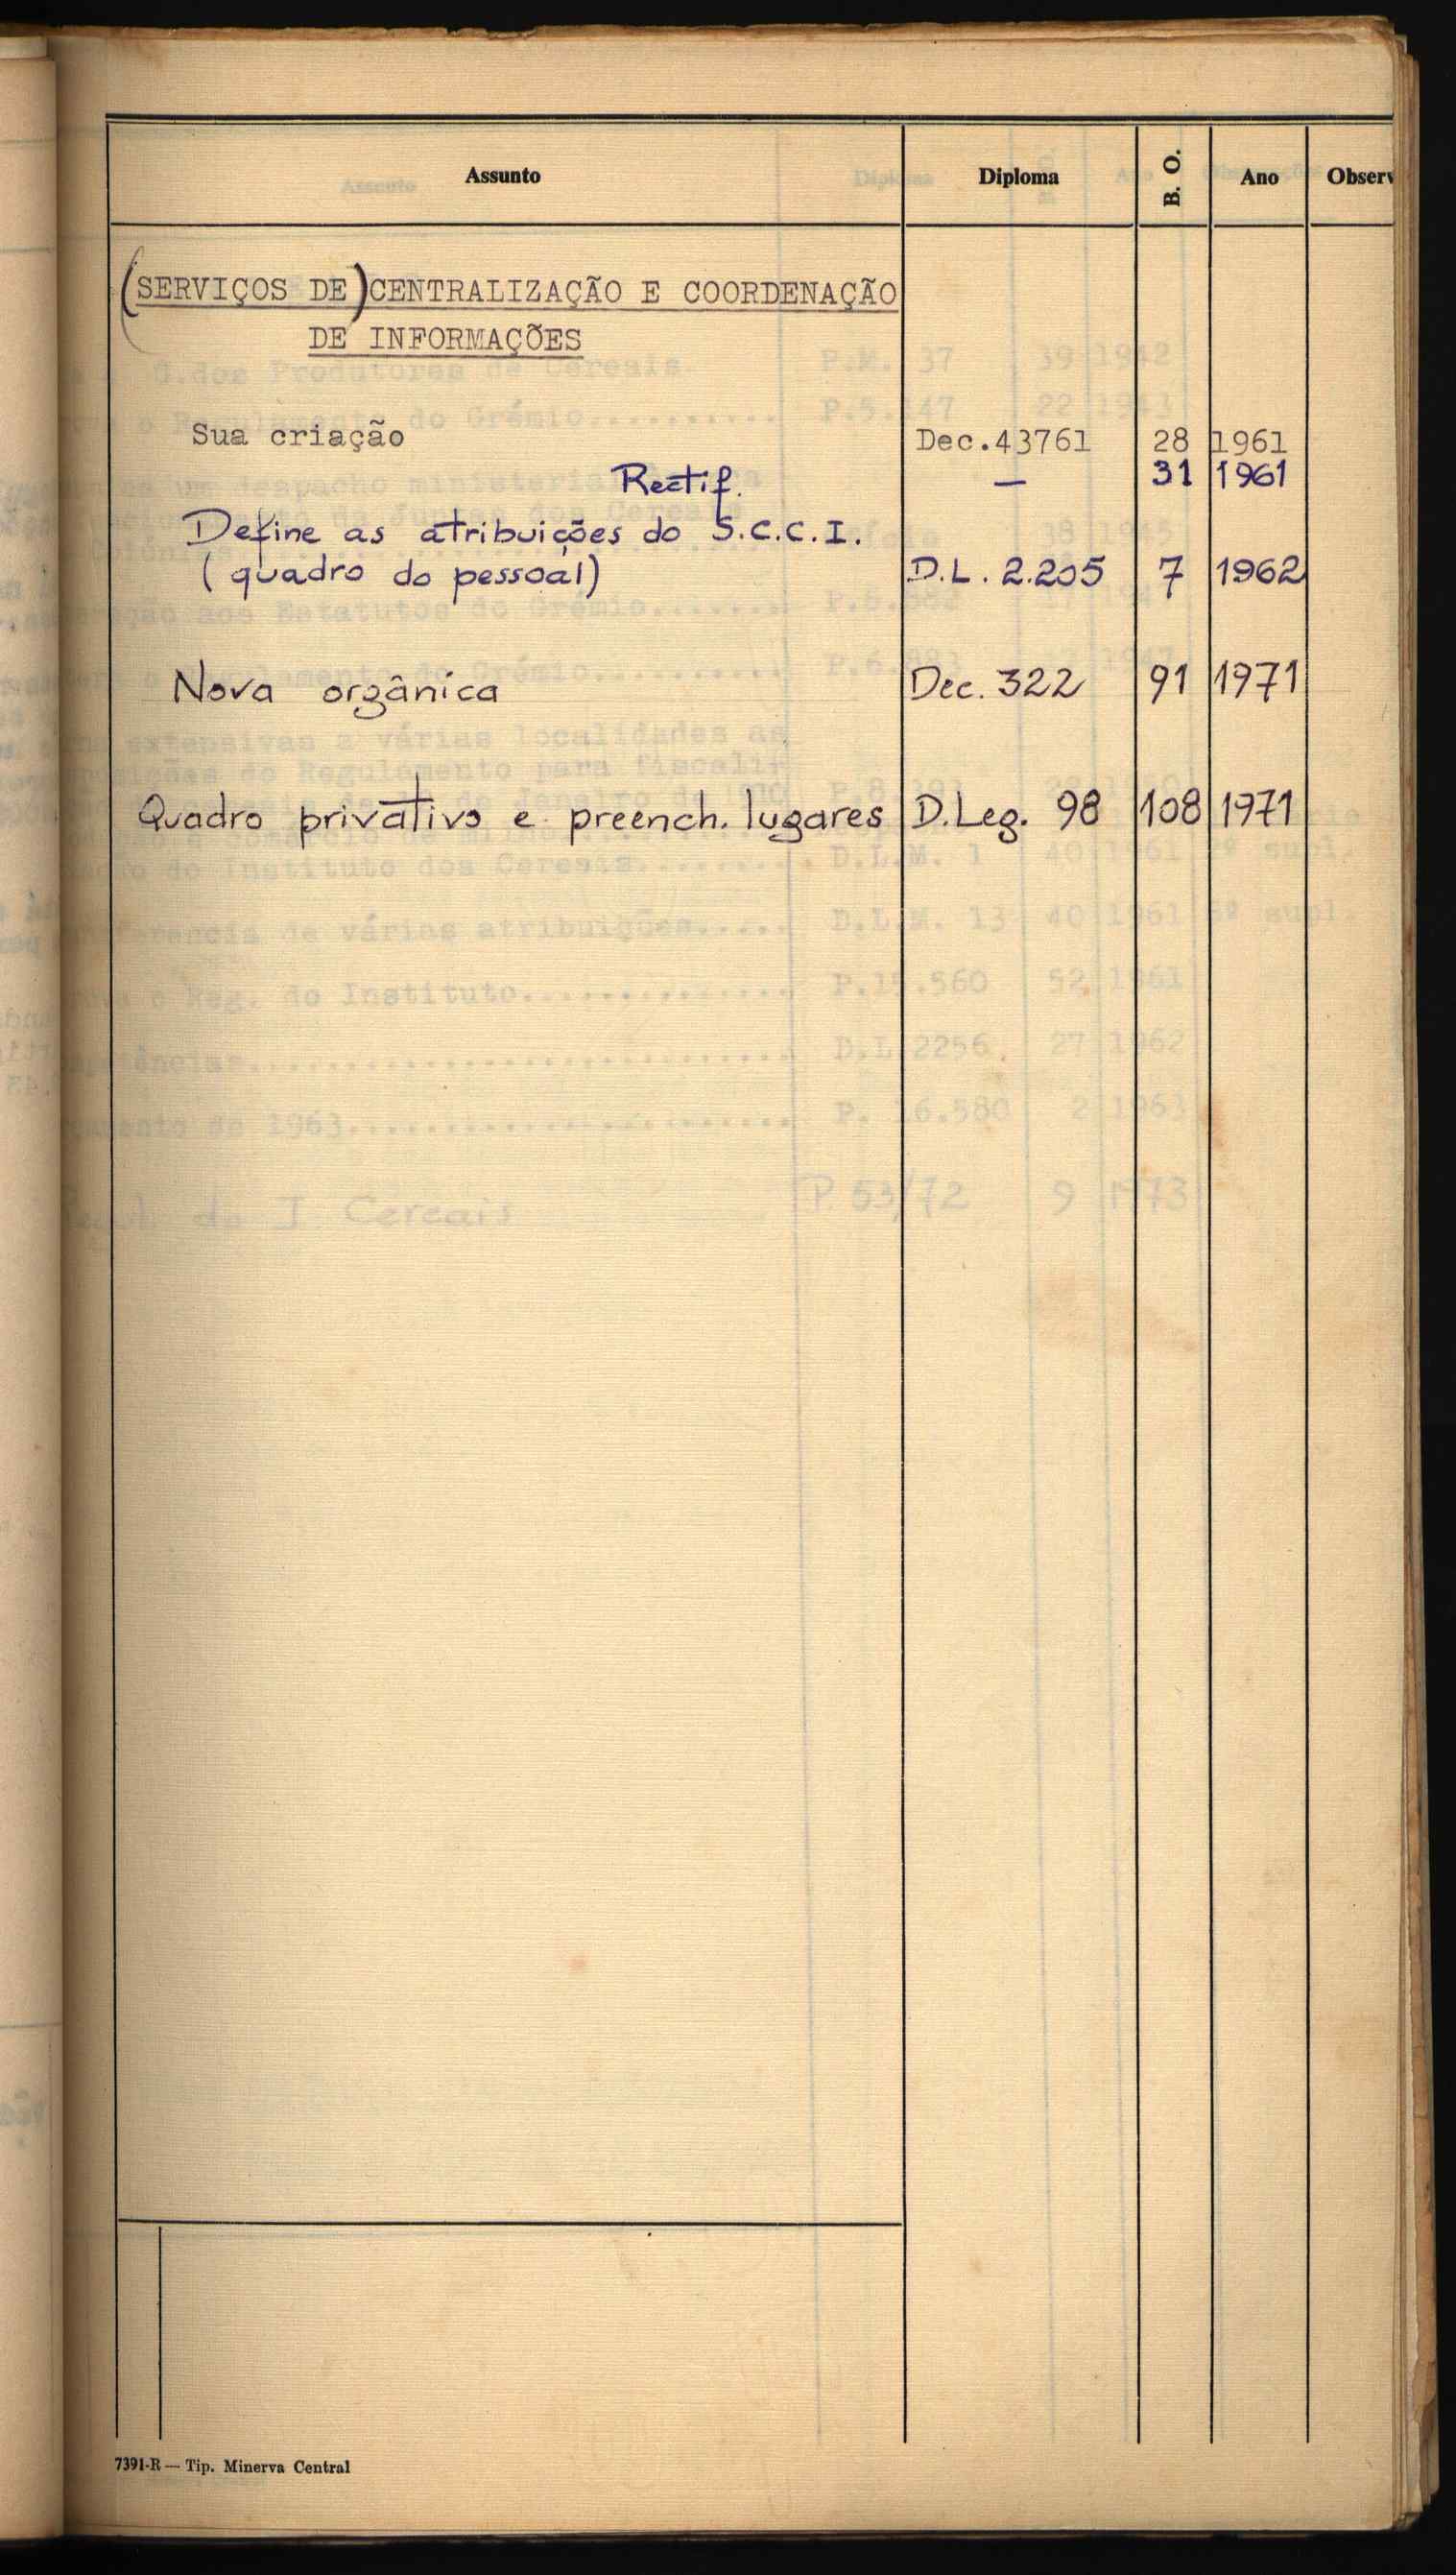 Assunto Diploma B. O. Ano Observ
(SERVIÇOS DE) CENTRALIZAÇÃO E COORDENAÇÃO
DE INFORMAÇÕES
Sua criação Dec.43761 28 1961
Rectif. — 31 1961
Define as atribuições do S.C.C.I.
(quadro do pessoal) D.L. 2.205 7 1962
Nova orgânica Dec. 322 91 1971
Quadro privativo e preench. lugares D.Leg. 98 108 1971
7391-R — Tip. Minerva Central